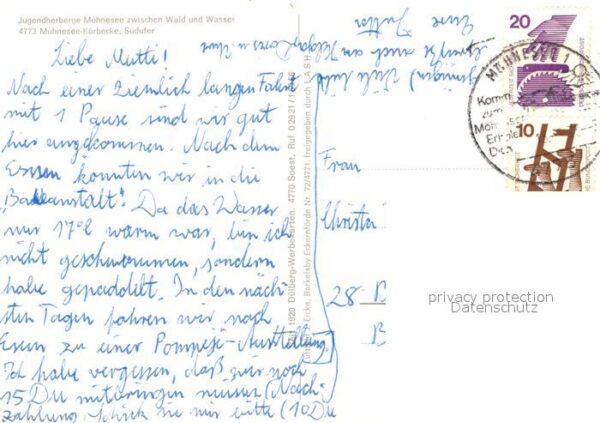 Jugendherberge Möhnesee zwischen Wald und Wasser
4773 Möhnesee-Körbecke, Südufer
Liebe Mutti!
Nach einer ziemlich langen Fahrt
mit 1 Pause sind wir gut
hier angekommen. Nach dem
Essen konnten wir in die
"Badeanstalt". Da das Wasser
nur 17° warm war, bin ich
nicht geschwommen, sondern
habe gepaddelt. In den näch-
sten Tagen fahren wir nach
Essen zu einer Pompeji-Ausstellung.
Ich habe vergessen, daß wir noch
15 DM mitbringen müssen (Nach-
zahlung). Schick sie mir bitte (10 DM
Eure
Frau
Christa
28 B
B
1920 Dülberg-Werbekarten, 4770 Soest, Ruf 02921/
Barkelsby Eckernförde Nr. 72/477, freigegeben durch
20
10
MÖHNESEE 1
Komm
zum
Möhnesee
privacy protection
Datenschutz